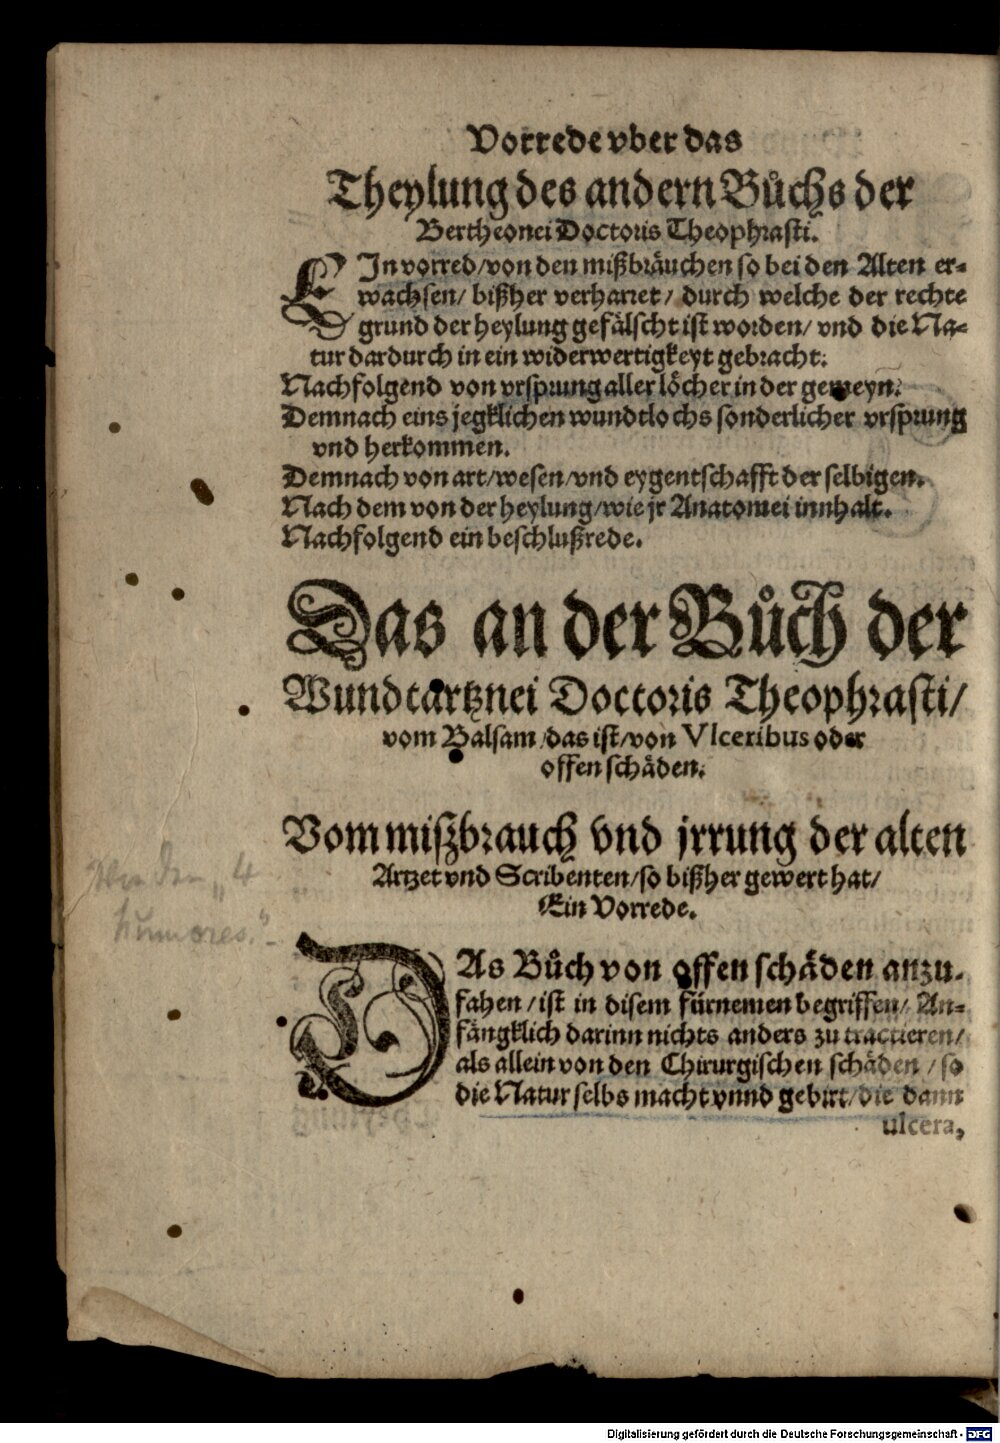 Vorrede vber das
Theylung des andern Bůchs der
Bertheonei Doctoris Theophrasti.
EIn vorred/von den mißbräuchen so bei den Alten er-
wachsen/ bißher verharret/ durch welche der rechte
grund der heylung gefälscht ist worden/ vnd die Na-
tur dardurch in ein widerwertigkeyt gebracht.
Nachfolgend von vrsprung aller löcher in der gemeyn.
Demnach eins jegklichen wundtlochs sonderlicher vrsprung
vnd herkommen.
Demnach von art/wesen/vnd eygentschafft der selbigen.
Nach dem von der heylung/wie jr Anatomei innhalt.
Nachfolgend ein beschlußrede.
Das ander Bůch der
Wundtartznei Doctoris Theophrasti/
vom Balsam/das ist/von Vlceribus oder
offen schäden.
Vom miszbrauch vnd jrrung der alten
Artzet vnd Scribenten/so bißher gewert hat/
Ein Vorrede.
DAs Bůch von offen schäden anzu-
fahen/ist in disem fürnemen begriffen/ An-
fängklich darinn nichts anders zu tractieren/
als allein von den Chirurgischen schäden/so
die Natur selbs macht vnnd gebirt/die dann
ulcera,
von den „4
humores."
Digitalisierung gefördert durch die Deutsche Forschungsgemeinschaft - DFG